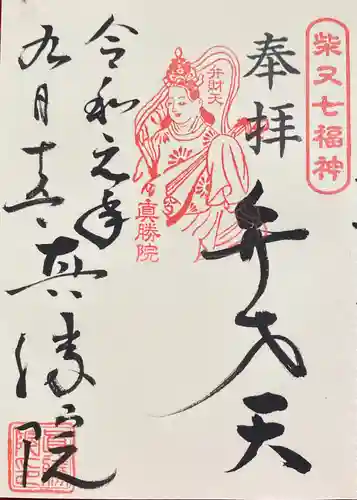 柴又七福神
奉拝
弁才天
弁財天
真勝院
令和元年
九月十五日
真勝院